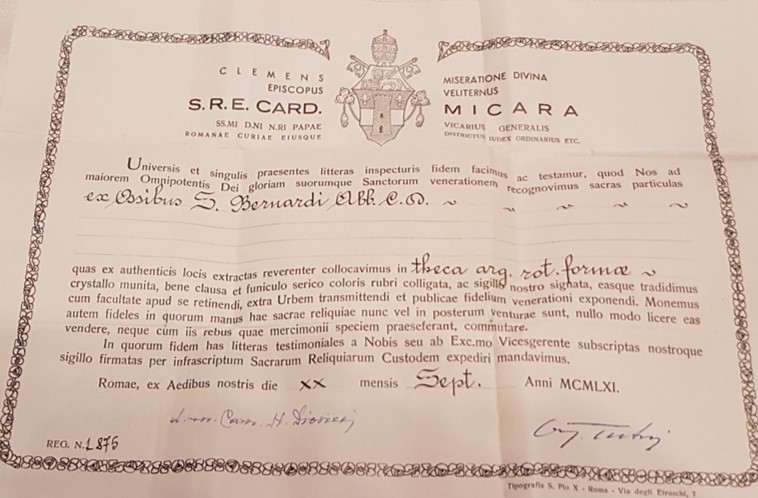 CLEMENS MISERATIONE DIVINA
EPISCOPUS VELITERNUS
S.R.E. CARD. MICARA
SS.MI D.NI N.RI PAPAE VICARIUS GENERALIS
ROMANAE CURIAE EIUSQUE DISTRICTUS IUDEX ORDINARIUS ETC.
Universis et singulis praesentes litteras inspecturis fidem facimus ac testamur, quod Nos ad
maiorem Omnipotentis Dei gloriam suorumque Sanctorum venerationem recognovimus sacras particulas
ex Ossibus S. Bernardi Abb. C. D. ~ ~ ~ ~ ~
quas ex authenticis locis extractas reverenter collocavimus in theca arg. rot. formæ ~
crystallo munita, bene clausa et funiculo serico coloris rubri colligata, ac sigillo nostro signata, easque tradidimus
cum facultate apud se retinendi, extra Urbem transmittendi et publicae fidelium venerationi exponendi. Monemus
autem fideles in quorum manus hae sacrae reliquiae nunc vel in posterum venturae sunt, nullo modo licere eas
vendere, neque cum iis rebus quae mercimonii speciem praeseferant, commutare.
In quorum fidem has litteras testimoniales a Nobis seu ab Exc.mo Vicesgerente subscriptas nostroque
sigillo firmatas per infrascriptum Sacrarum Reliquiarum Custodem expediri mandavimus.
Romae, ex Aedibus nostris die XX mensis Sept. Anni MCMLXI.
REG. N. 1875
Tipografia S. Pio X - Roma - Via degli Etruschi, 7